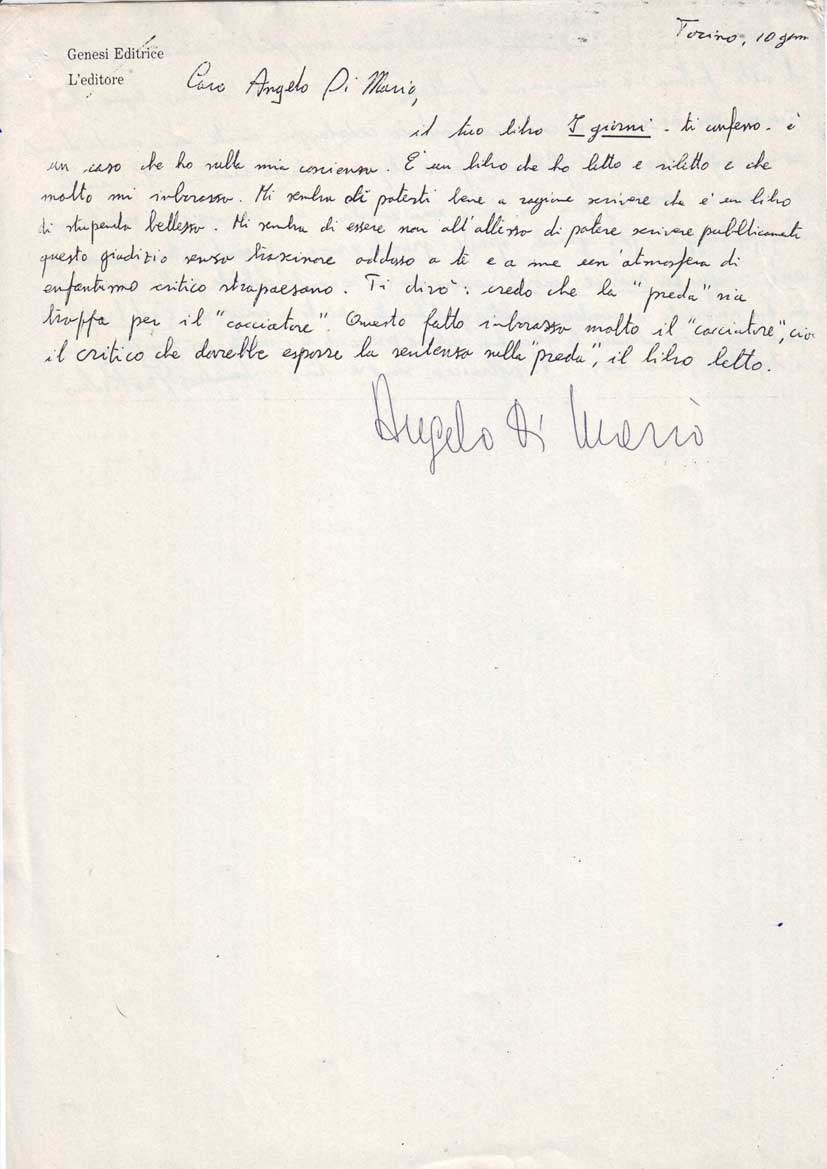 Torino, 10 genn
Genesi Editrice
L'editore
Caro Angelo Di Mario,
il tuo libro I giorni - ti confesso - è
un caso che ho sulla mia coscienza. È un libro che ho letto e riletto e che
molto mi imbarazza. Mi sembra di poterti bene a ragione scrivere che è un libro
di stupenda bellezza. Mi sembra di essere non all'altezza di potere scrivere pubblicamente
questo giudizio senza trascinare addosso a te e a me un'atmosfera di
enfantismo critico strapaesano. Ti dirò: credo che la "preda" sia
troppa per il "cacciatore". Questo fatto imbarazza molto il "cacciatore", cioè
il critico che dovrebbe esporre la sentenza sulla "preda", il libro letto.
Angelo Di Mario